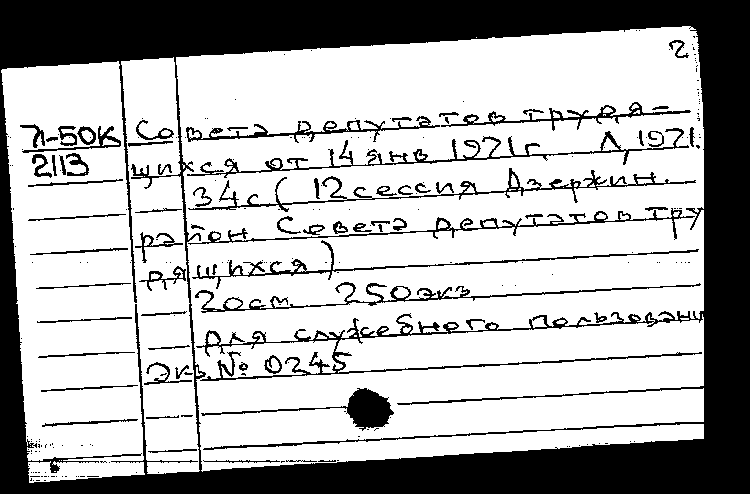 2
Л-50К Совета депутатов трудя=
2113 щихся от 14 янв 1971г. Л, 1971.
34с ( 12 сессия Дзержин.
район. Совета депутатов тру
дящихся)
20см. 250экз.
Для служебного пользовани
Экз. № 0245